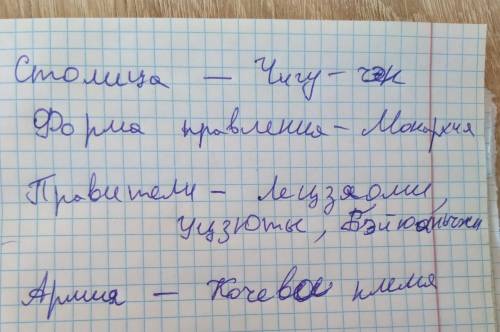 Столица — Чигу-чэн
Форма правления – Монархия
Правители – Лецзяоми,
Уцзюты, Бэйюаньчжи
Армия — Кочевое племя